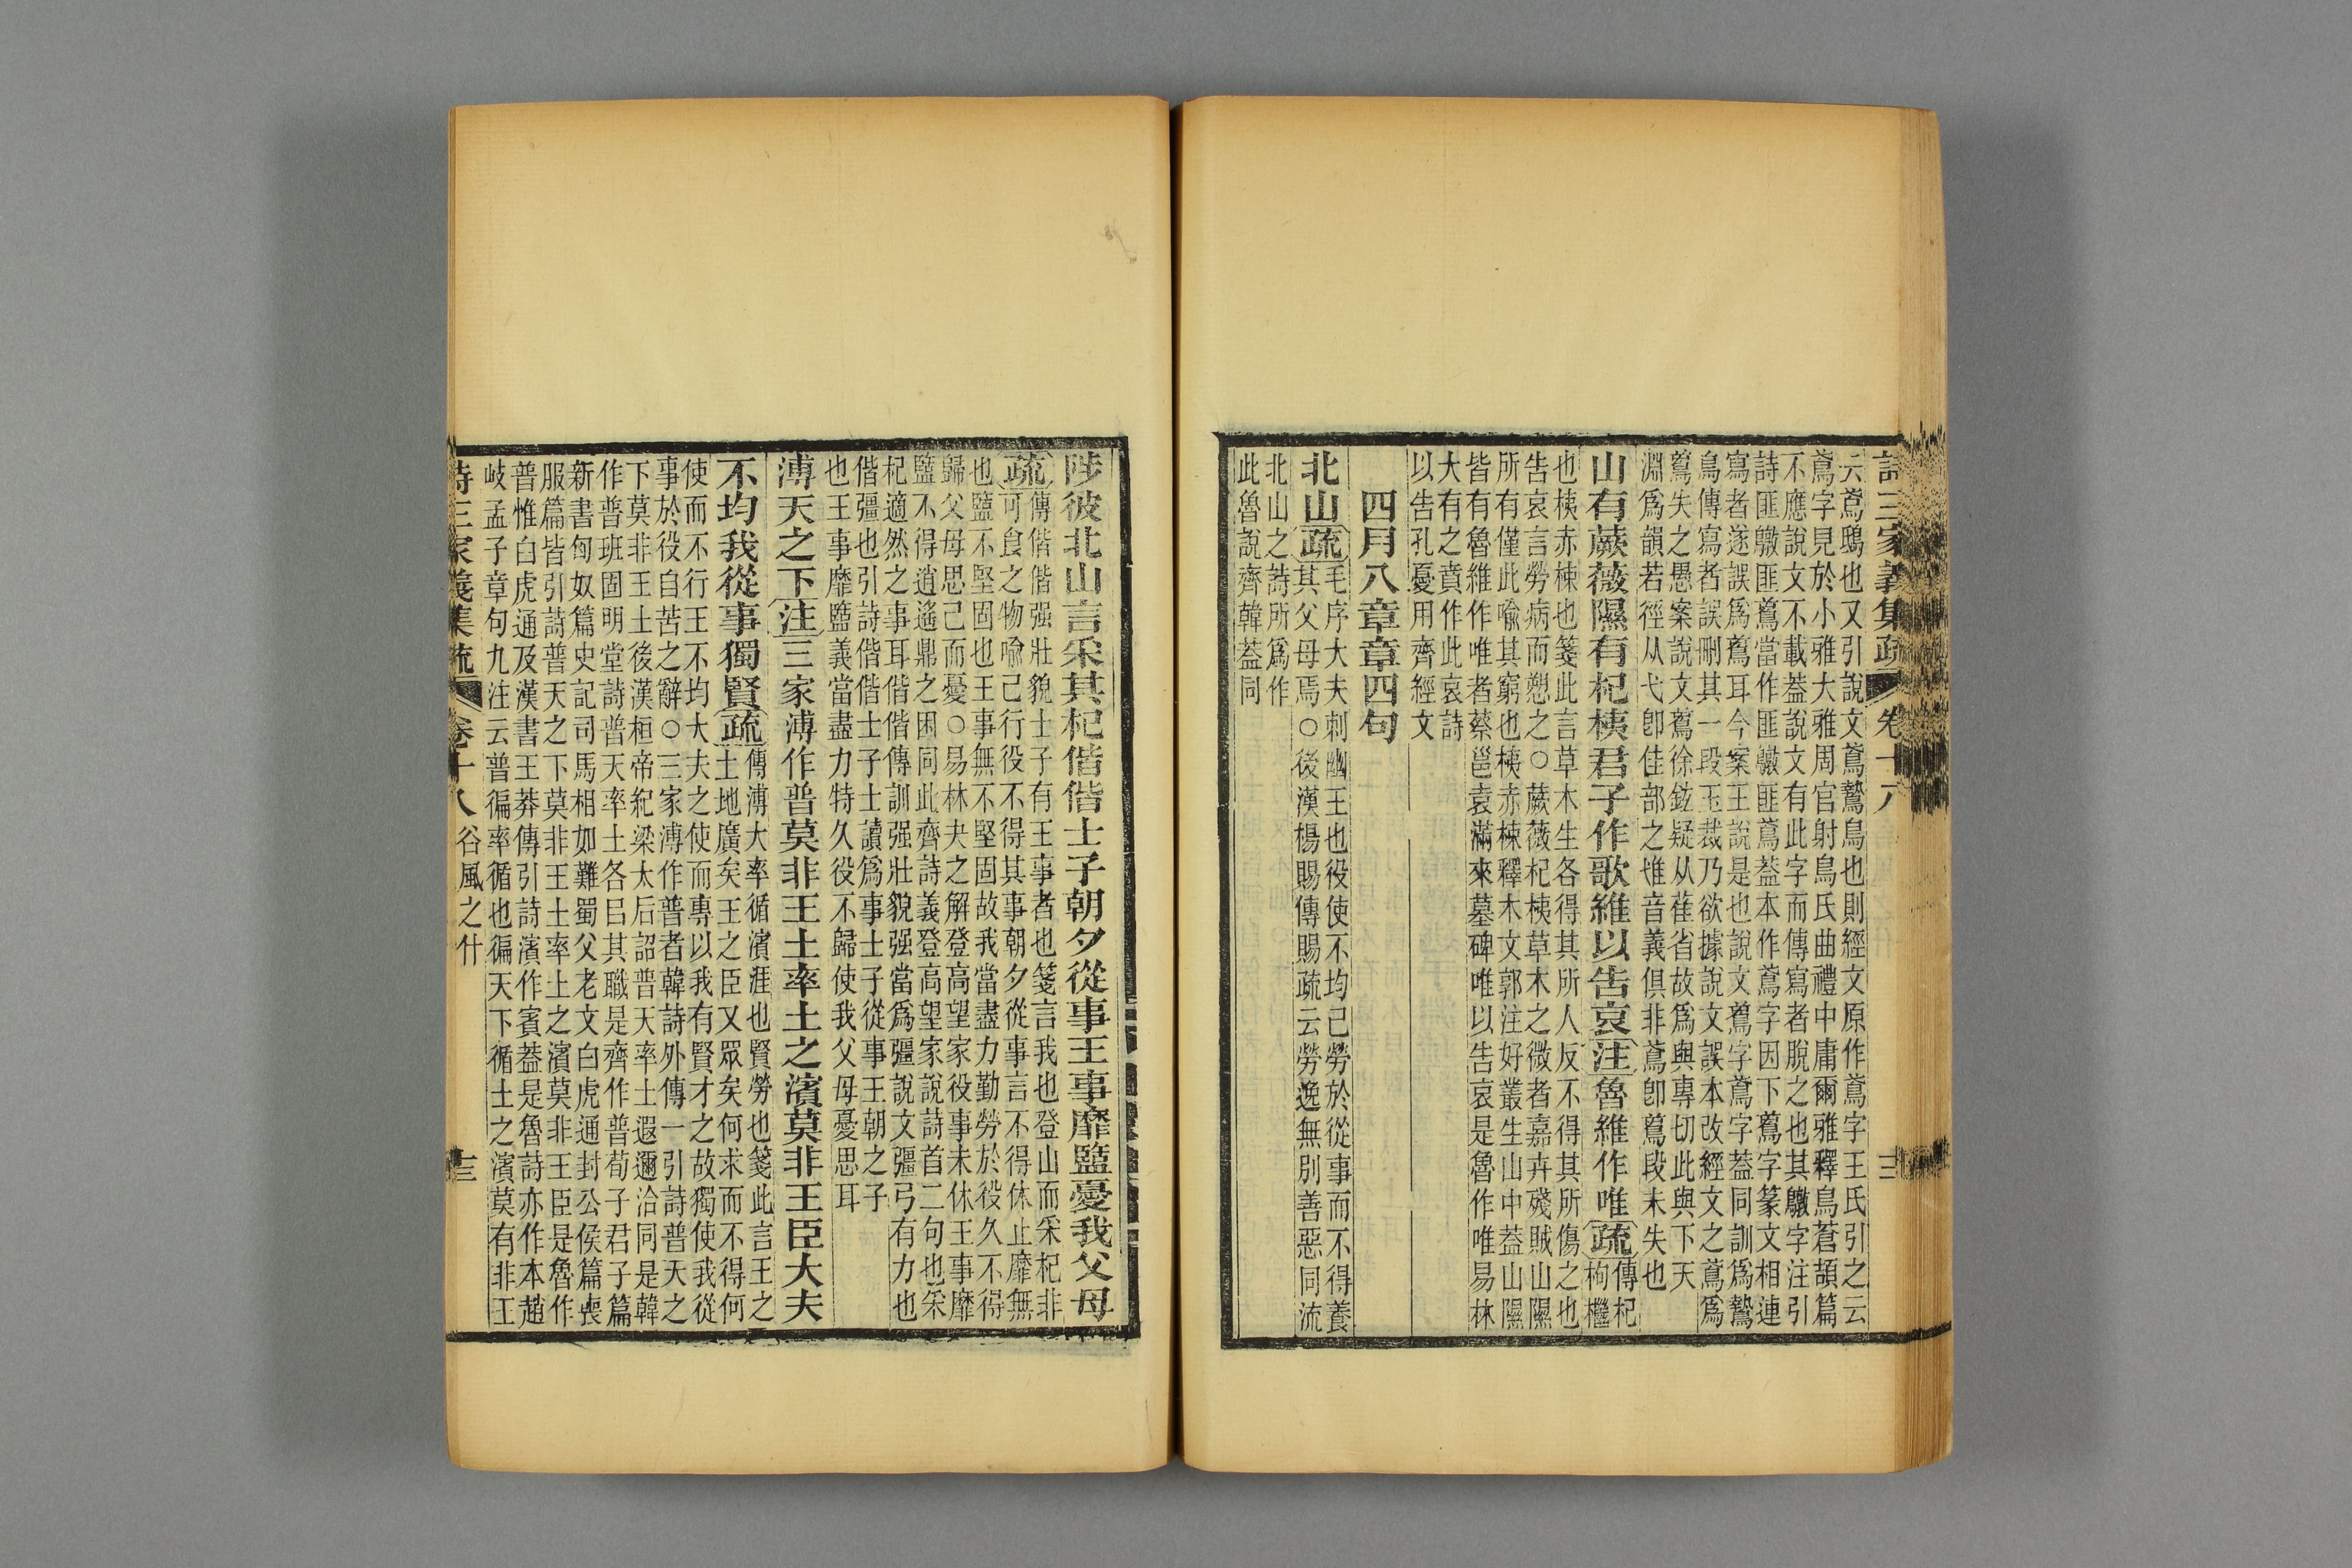 詩三家義集疏 卷十八
云鳶鴟也又引說文鳶鷙鳥也則經文原作鳶字王氏引之云
鳶字見於小雅大雅周官射鳥氏曲禮中庸爾雅釋鳥蒼頡篇
不應說文不載葢說文有此字而傳寫者脫之也其鷻字注引
詩匪鷻匪鳶當作匪鷻匪鳶葢本作鳶字因下蔦字篆文相連
寫者遂誤爲蔦耳今案王說是也說文鳶字鳶字葢同訓爲鷙
鳥傳寫者誤刪其一段玉裁乃欲據說文誤本改經文之鳶爲
鷻失之愚案說文蔦徐鉉疑从萑省故爲與專切此與下天
淵爲韻若徑从弋卽佳部之雉音義俱非鳶卽蔦段未失也
山有蕨薇隰有杞桋君子作歌維以告哀注魯維作唯疏傳杞枸檵
也桋赤楝也箋此言草木生各得其所人反不得其所傷之也
告哀言勞病而愬之〇蕨薇杞桋草木之微者嘉卉殘賊山隰
所有僅此喩其窮也桋赤楝釋木文郭注好叢生山中葢山隰
皆有魯維作唯者蔡邕袁滿來墓碑唯以告哀是魯作唯易林
大有之賁作此哀詩
以告孔憂用齊經文
四月八章章四句
北山疏毛序大夫刺幽王也役使不均已勞於從事而不得養
其父母焉〇後漢楊賜傳賜疏云勞逸無別善惡同流
北山之詩所爲作
此魯說齊韓葢同
陟彼北山言采其杞偕偕士子朝夕從事王事靡盬憂我父母
疏傳偕偕强壯貌士子有王事者也箋言我也登山而采杞非
可食之物喩己行役不得其事朝夕從事言不得休止靡無
也盬不堅固也王事無不堅固故我當盡力勤勞於役久不得
歸父母思己而憂〇易林夬之解登高望家役事未休王事靡
盬不得逍遙鼎之困同此齊詩義登高望家說詩首二句也采
杞適然之事耳偕偕傳訓强壯貌强當爲彊說文彊弓有力也
偕彊也引詩偕偕士子士讀爲事士子從事王朝之子
也王事靡盬義當盡力特久役不歸使我父母憂思耳
溥天之下注三家溥作普莫非王土率土之濱莫非王臣大夫
不均我從事獨賢疏傳溥大率循濱涯也賢勞也箋此言王之
土地廣矣王之臣又眾矣何求而不得何
使而不行王不均大夫之使而專以我有賢才之故獨使我從
事於役自苦之辭〇三家溥作普者韓詩外傳一引詩普天之
下莫非王土後漢桓帝紀梁太后詔普天率土遐邇洽同是韓
作普班固明堂詩普天率土各㠯其職是齊作普荀子君子篇
新書匈奴篇史記司馬相如難蜀父老文白虎通封公侯篇喪
服篇皆引詩普天之下莫非王土率土之濱莫非王臣是魯作
普惟白虎通及漢書王莽傳引詩濱作賓葢是魯詩亦作本趙
岐孟子章句九注云普徧率循也徧天下循土之濱莫有非王
詩三家義集疏 卷十八 谷風之什